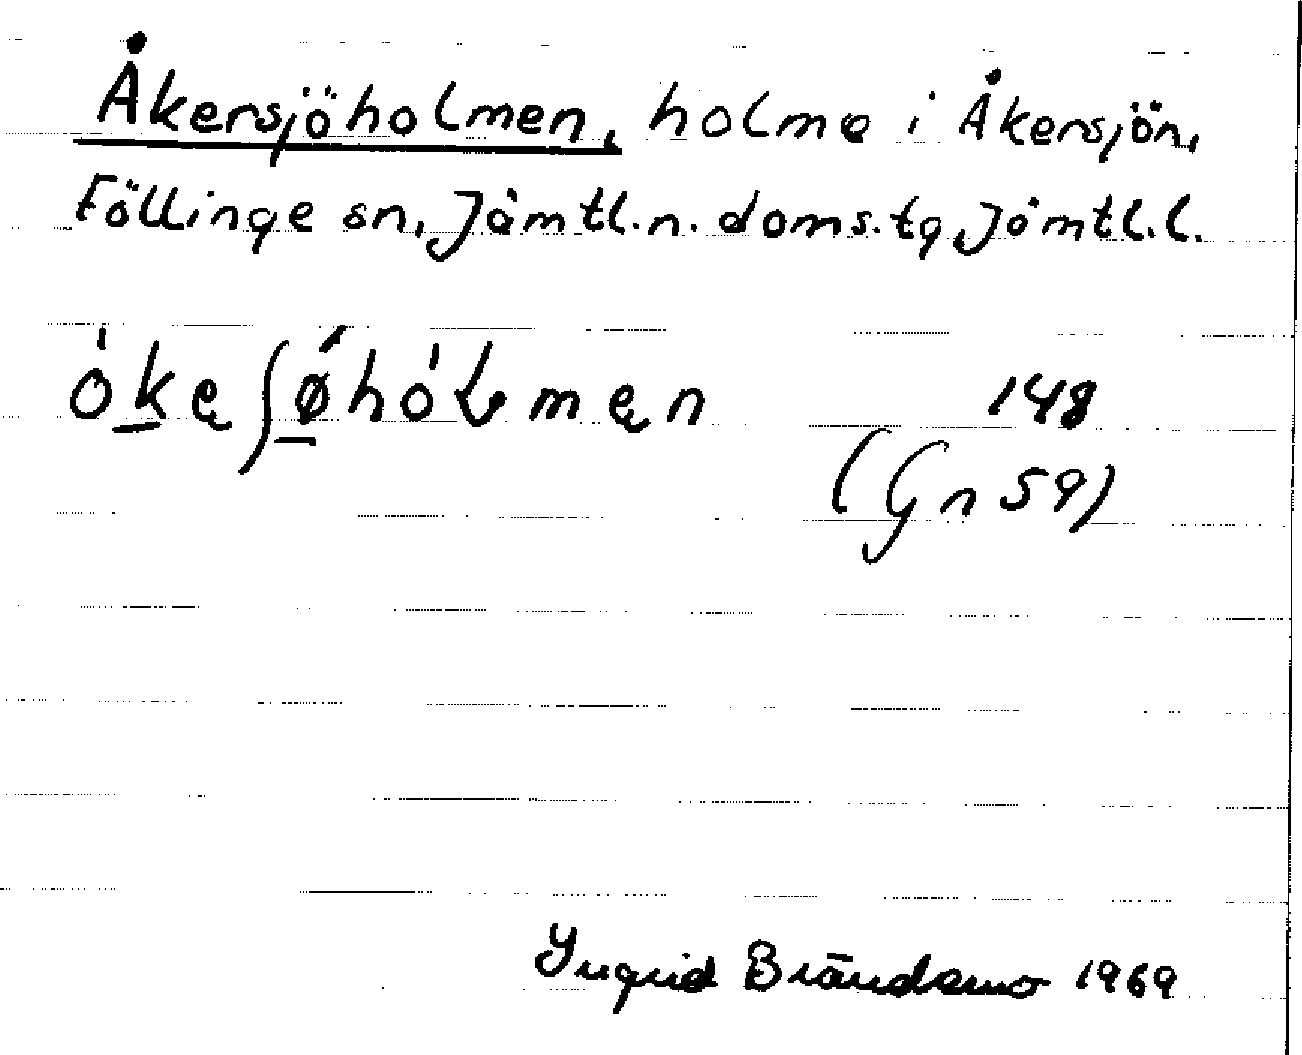 Åkersjöholmen, holme i Åkersjön,
Föllinge sn, Jämtl.n. doms.tg, Jämtl.l.
ó̀k̲ęʃǿ̲hòɫmęn 148
(Gn 59)
Ingrid Brändemo 1969